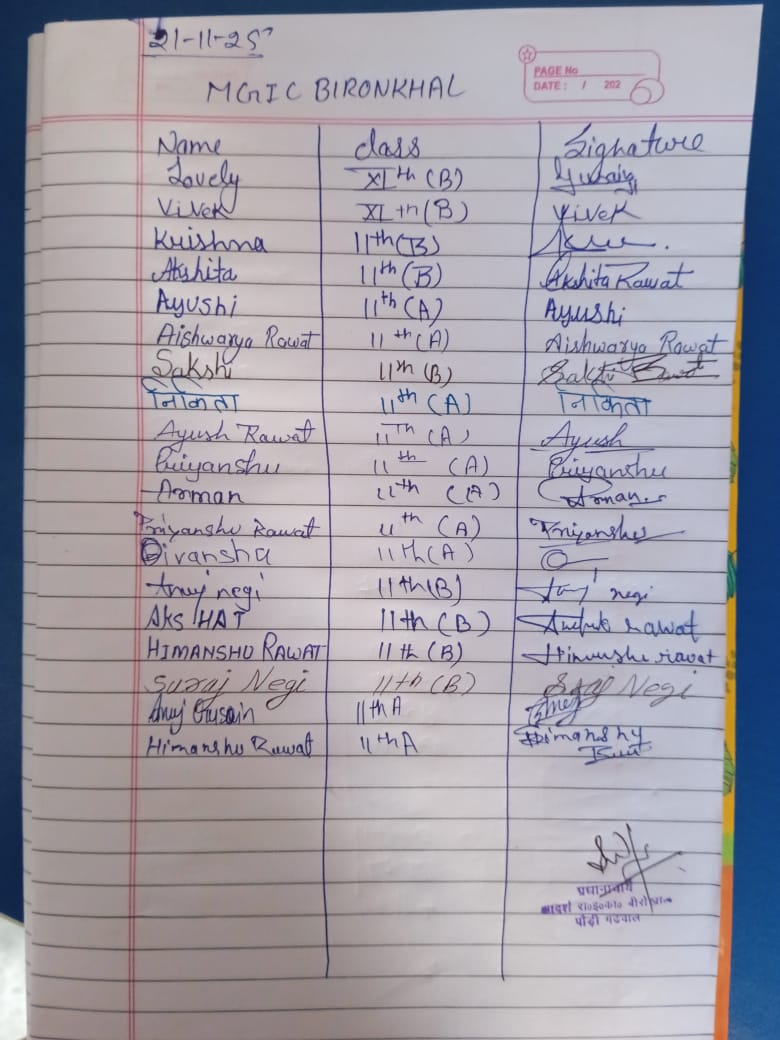 21-11-25
PAGE No
DATE: / 202
MGIC BIRONKHAL
Name class Signature
Lovely XIth (B)
Vivek XIth (B) Vivek
Krishna 11th (B)
Akshita 11th (B) Akshita Rawat
Ayushi 11th (A) Ayushi
Aishwarya Rawat 11th (A) Aishwarya Rawat
Sakshi 11th (B) Sakshi Rawat
निकिता 11th (A) निकिता
Ayush Rawat 11Th (A) Ayush
Priyanshu 11th (A) Priyanshu
Arman 11th (A) Arman
Priyanshu Rawat 11th (A) Priyanshu
Divansha 11th (A)
Anuj negi 11th (B) Anuj negi
AKSHAT 11th (B) rawat
HIMANSHU RAWAT 11th (B) Himanshu rawat
Suraj Negi 11th (B) Suraj Negi
Anuj Gusain 11th A
Himanshu Rawat 11th A Himanshu
प्रधानाचार्य
आदर्श रा०इ०का० बीरोंखाल
पौड़ी गढ़वाल